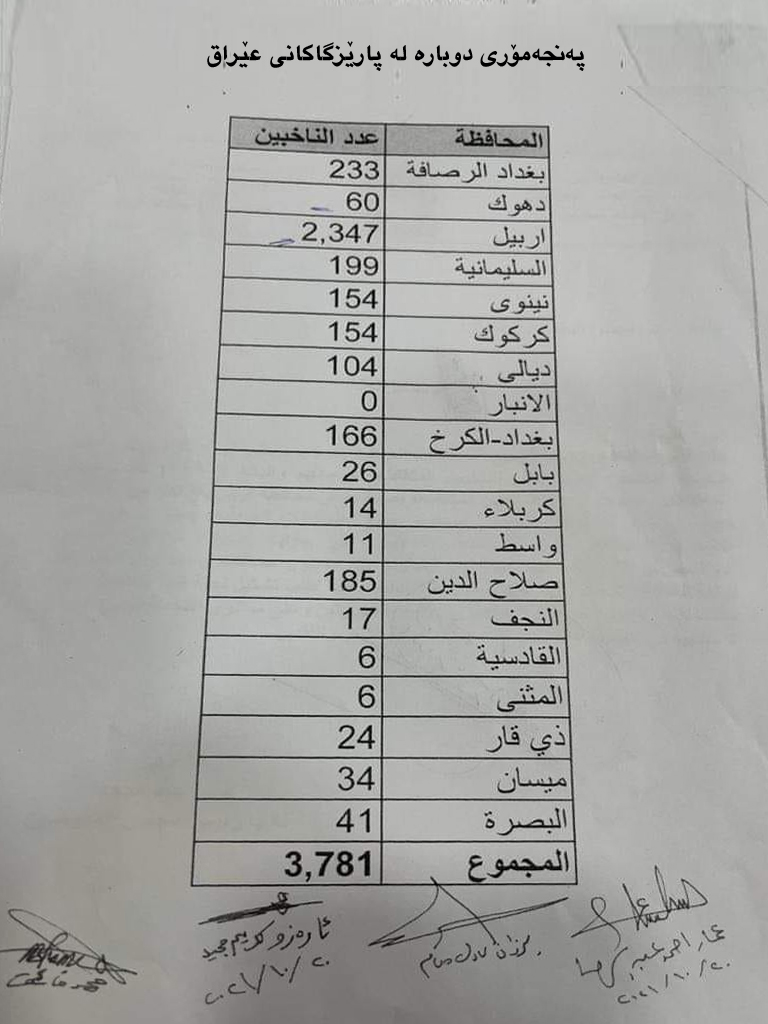 پەنجەمۆری دوبارە لە پارێزگاکانی عێراق
المحافظة عدد الناخبين
بغداد الرصافة 233
دهوك 60
اربيل 2,347
السليمانية 199
نينوى 154
كركوك 154
ديالى 104
الانبار 0
بغداد-الكرخ 166
بابل 26
كربلاء 14
واسط 11
صلاح الدين 185
النجف 17
القادسية 6
المثنى 6
ذي قار 24
ميسان 34
البصرة 41
المجموع 3,781
ئارەزو كريم مجيد
٢٠٢١/١٠/٢٠
٢٠٢١/١٠/٢٠